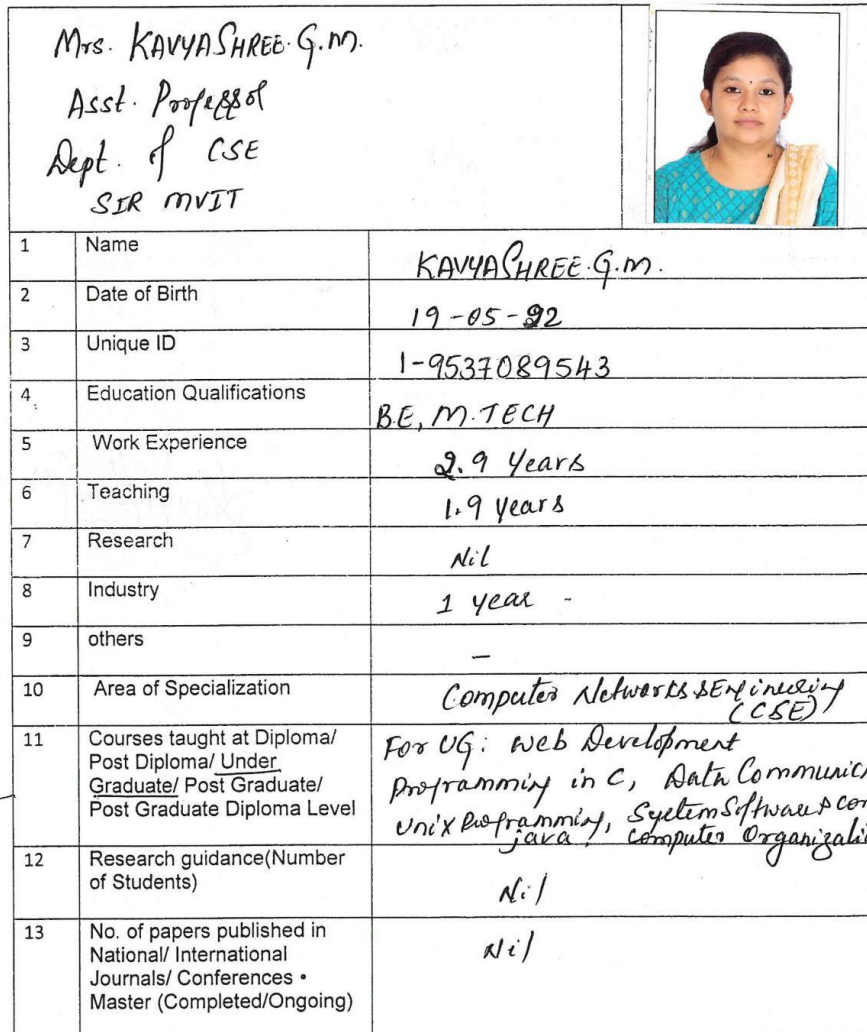 Mrs. KAVYASHREE. G.M.
Asst. Professor
Dept. of CSE
SIR MVIT
1 Name KAVYASHREE. G.M.
2 Date of Birth 19-05-92
3 Unique ID 1-9537089543
4 Education Qualifications B.E, M.TECH
5 Work Experience 2.9 Years
6 Teaching 1.9 years
7 Research Nil
8 Industry 1 year -
9 others –
10 Area of Specialization Computer Networks & Engineering
(CSE)
11 Courses taught at Diploma/ For UG: Web Development
Post Diploma/ Under Programming in C, Data Communic
Graduate/ Post Graduate/ Unix Programming, System Software & Com
Post Graduate Diploma Level java, Computer Organizati
12 Research guidance(Number
of Students) Nil
13 No. of papers published in Nil
National/ International
Journals/ Conferences •
Master (Completed/Ongoing)